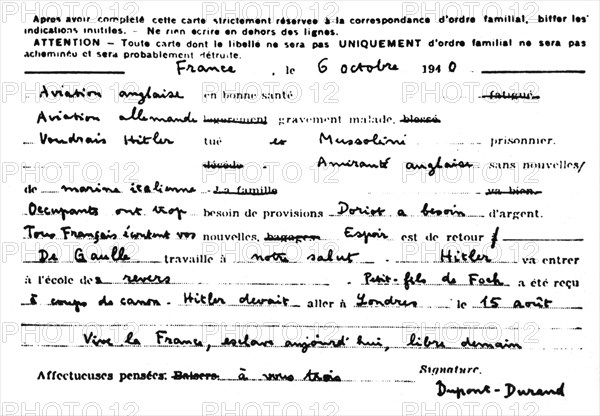 Après avoir complété cette carte strictement réservée à la correspondance d'ordre familial, biffer les
indications inutiles. - Ne rien écrire en dehors des lignes.
ATTENTION - Toute carte dont le libellé ne sera pas UNIQUEMENT d'ordre familial ne sera pas
acheminée et sera probablement détruite.
France , le 6 octobre 1940
Aviation anglaise en bonne santé fatigué
Aviation allemande légèrement gravement malade, blessé
Voudrais Hitler tué et Mussolini prisonnier.
décédé Amirauté anglaise sans nouvelles
de marine italienne La famille va bien
Occupants ont trop besoin de provisions Doriot a besoin d'argent.
Tous Français écoutent vos nouvelles, bagages Espoir est de retour
De Gaulle travaille à notre salut. Hitler va entrer
à l'école des revers Petit-fils de Foch a été reçu
à coups de canon. Hitler devait aller à Londres le 15 août
Vive la France, esclave aujourd'hui, libre demain
Affectueuses pensées. Baisers à vous trois Signature.
Dupont-Durand
PHOTO12